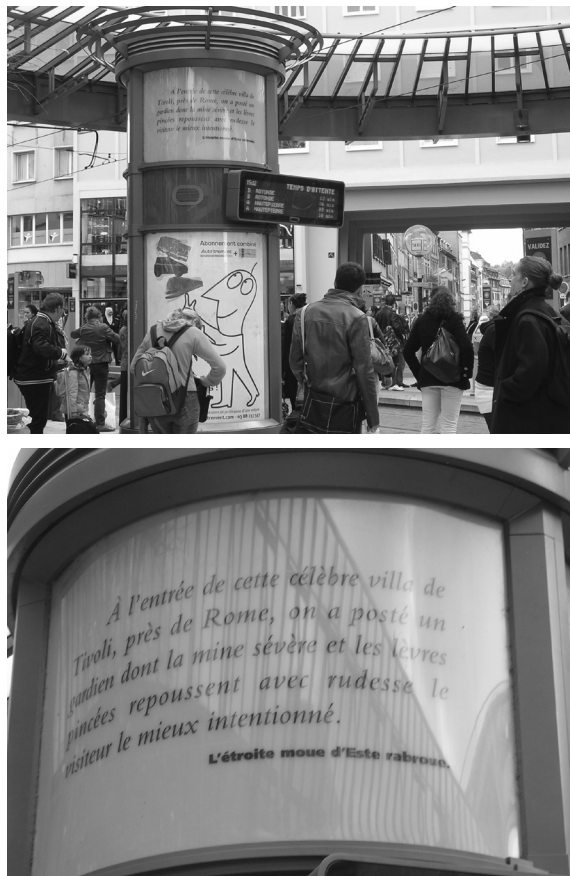 À l'entrée de cette célèbre villa de
Tivoli, près de Rome, on a posté un
gardien dont la mine sévère et les lèvres
pincées repoussent avec rudesse le
visiteur le mieux intentionné.
TEMPS D'ATTENTE
ROTONDE
ROTONDE
HAUTEPIERRE
HAUTEPIERRE
VALIDEZ
Abonnement combiné
À l'entrée de cette célèbre villa de
Tivoli, près de Rome, on a posté un
gardien dont la mine sévère et les lèvres
pincées repoussent avec rudesse le
visiteur le mieux intentionné.
L'étroite moue d'Este rabroue.